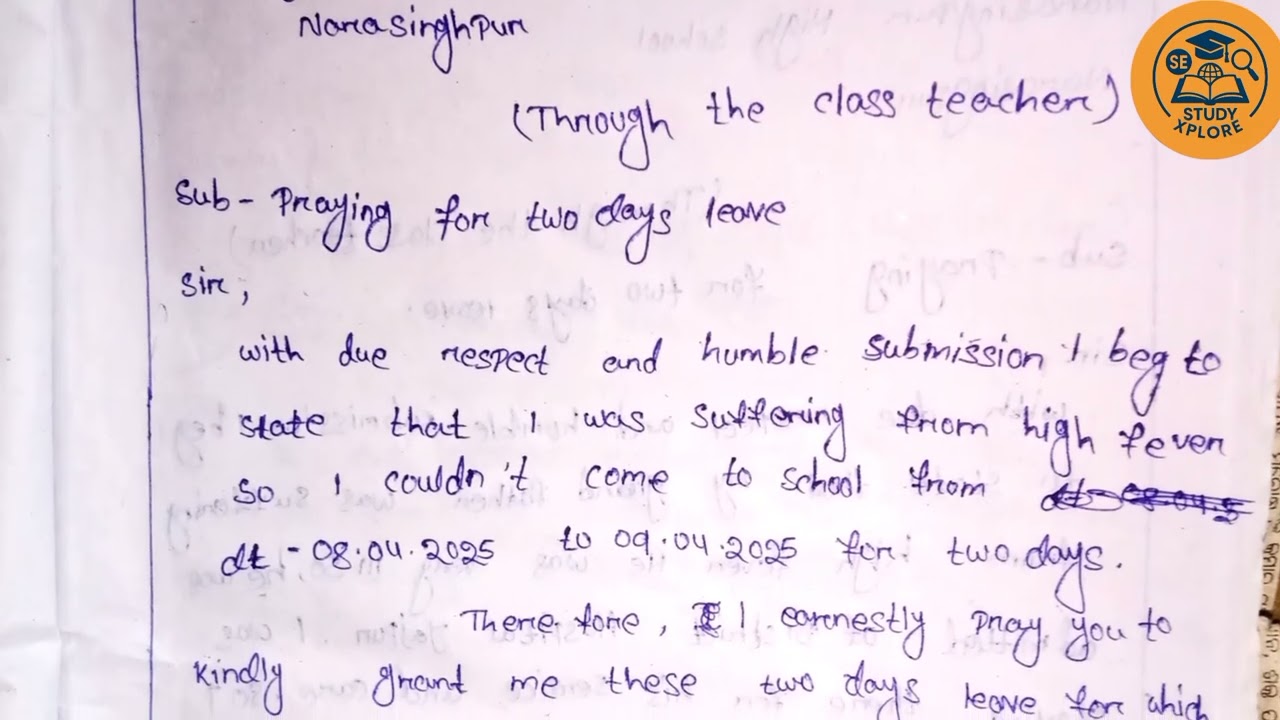 Narasinghpur
(Through the class teacher)
Sub- Praying for two days leave
Sir,
with due respect and humble submission I beg to
state that I was suffering from high fever
so I couldn't come to school from dt- 08.04.5
dt - 08.04.2025 to 09.04.2025 for two days.
There fore, I I earnestly pray you to
kindly grant me these two days leave for which
SE
STUDY
XPLORE